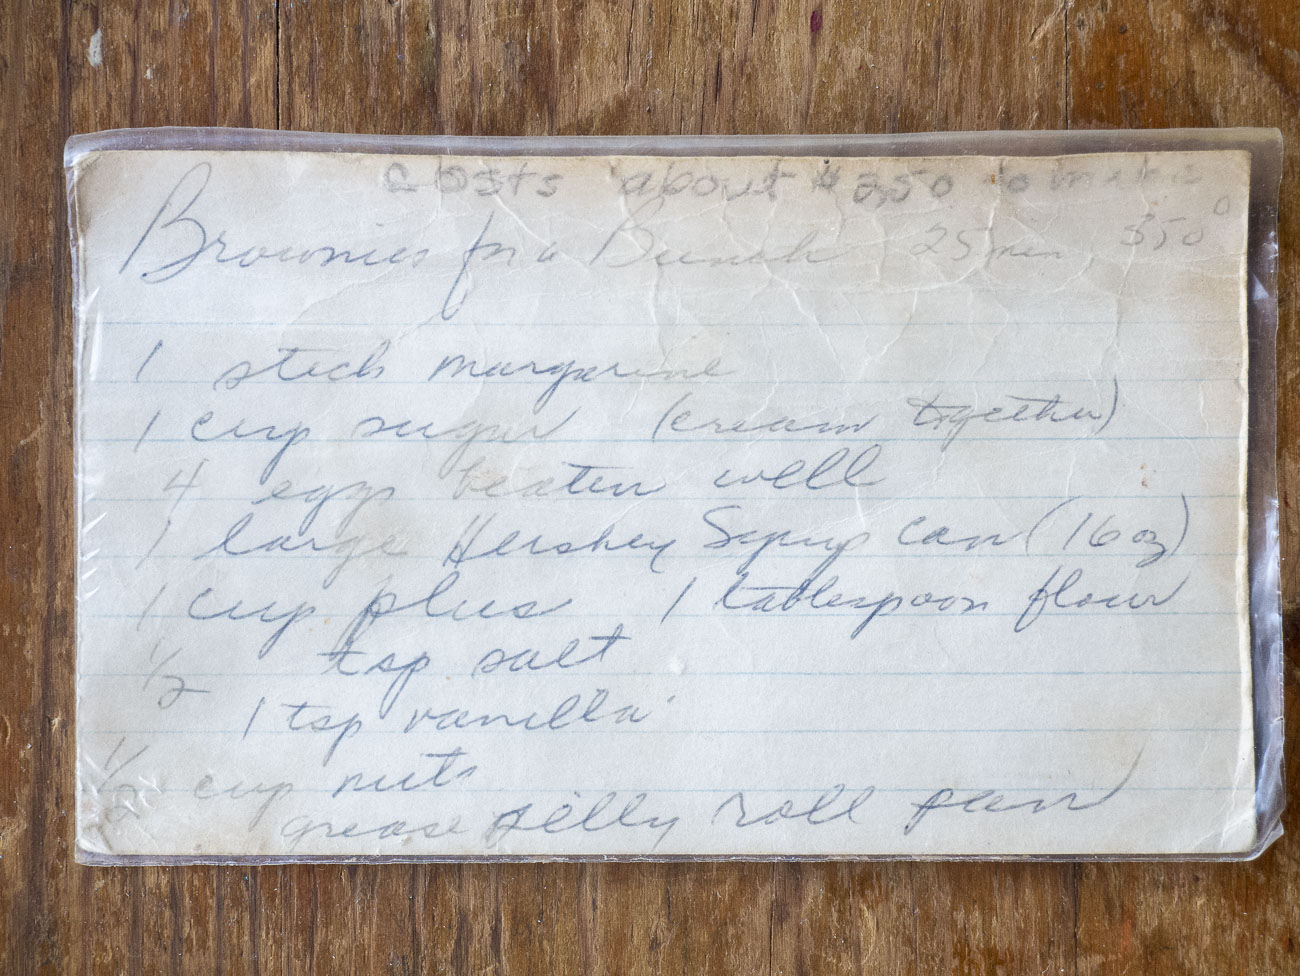 Costs about $2.50 to make
Brownies for a Bunch 25 min 350°
1 stick margarine
1 cup sugar (cream together)
4 eggs beaten well
1 large Hershey Syrup can (16 oz)
1 cup plus 1 tablespoon flour
1/2 tsp salt
1 tsp vanilla
1/2 cup nuts
grease jelly roll pan